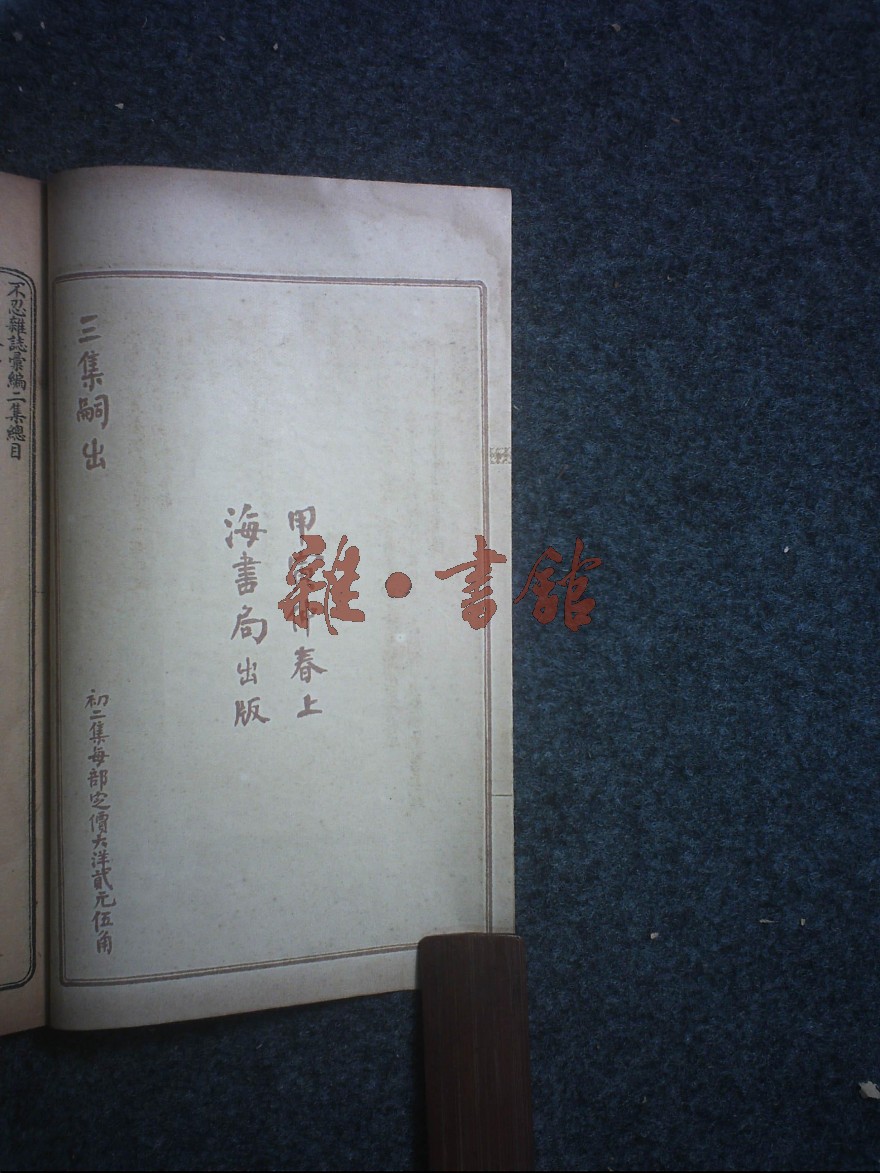 甲春上
海書局出版
三集嗣出
初二集每部定價大洋貳元伍角
不忍雜誌彙編二集總目
雜·書館